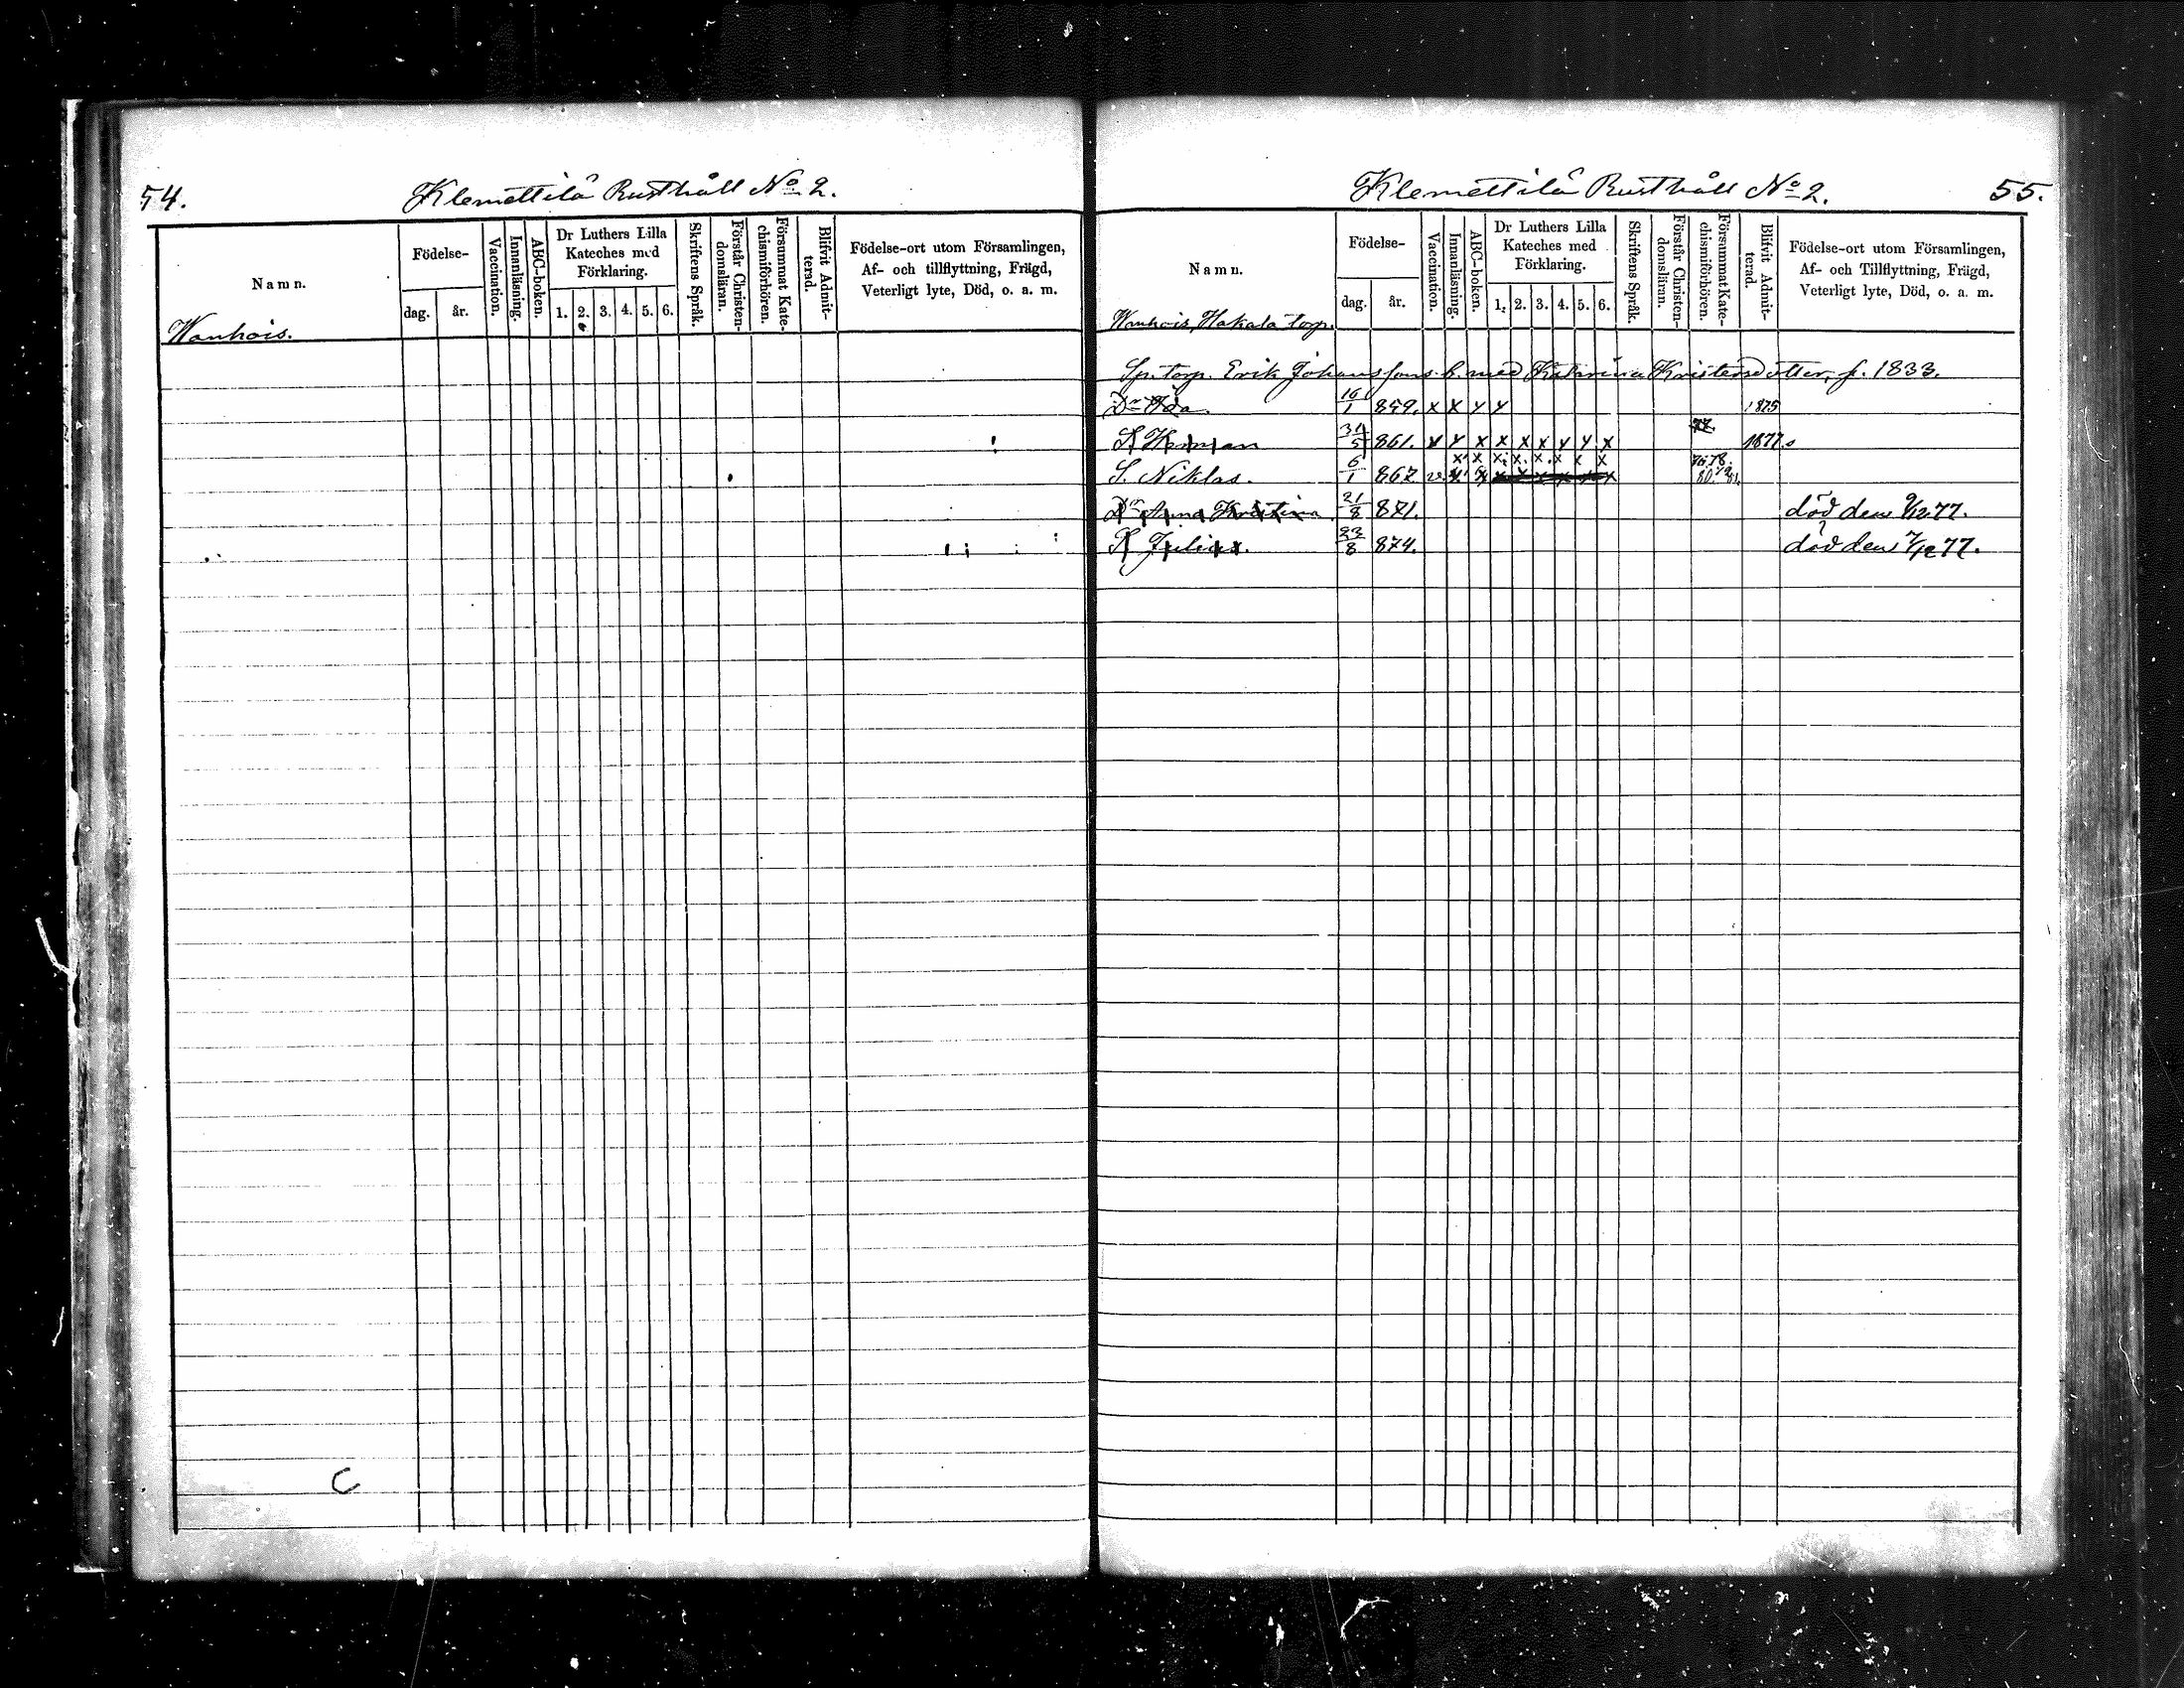 54.
Klemettilä Rusthåll No 2.
Namn.
Födelse-
dag.
år.
Vaccination.
Innanläsning.
ABC-boken.
Dr Luthers Lilla
Kateches med
Förklaring.
1. 2. 3. 4. 5. 6.
Skriftens Språk.
Förstår Christen-
domsläran.
Försummat Kate-
chismiförhören.
Blifvit Admit-
terad.
Födelse-ort utom Församlingen,
Af- och tillflyttning, Frägd,
Veterligt lyte, Död, o. a. m.
Wanhois.
C
Klemettilä Rusthåll No 2.
55.
Namn.
Födelse-
dag.
år.
Vaccination.
Innanläsning.
ABC-boken.
Dr Luthers Lilla
Kateches med
Förklaring.
1. 2. 3. 4. 5. 6.
Skriftens Språk.
Förstår Christen-
domsläran.
Försummat Kate-
chismiförhören.
Blifvit Admit-
terad.
Födelse-ort utom Församlingen,
Af- och Tillflyttning, Frägd,
Veterligt lyte, Död, o. a. m.
Wanhois, Hakala torp.
Sp. torp. Erik Johanssons b. med Katarina Kristersdotter, f. 1833.
Dr Ida. 16/1 859. x x y y 1875
S. Herman 31/5 861. x y x x x x y y x 77. 1877.
x x x x x x x x 76. 78.
S. Niklas. 6/1 867 x x x x x x 80. 81.
Dr Anna Kristina. 21/8 871. död den 9/12 77.
S. Julius. 23/8 874. död den 7/12 77.